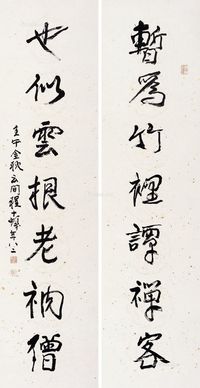 暫爲竹裡譚禪客
也似雲根老衲僧
壬午金秋云间程十髮年八二